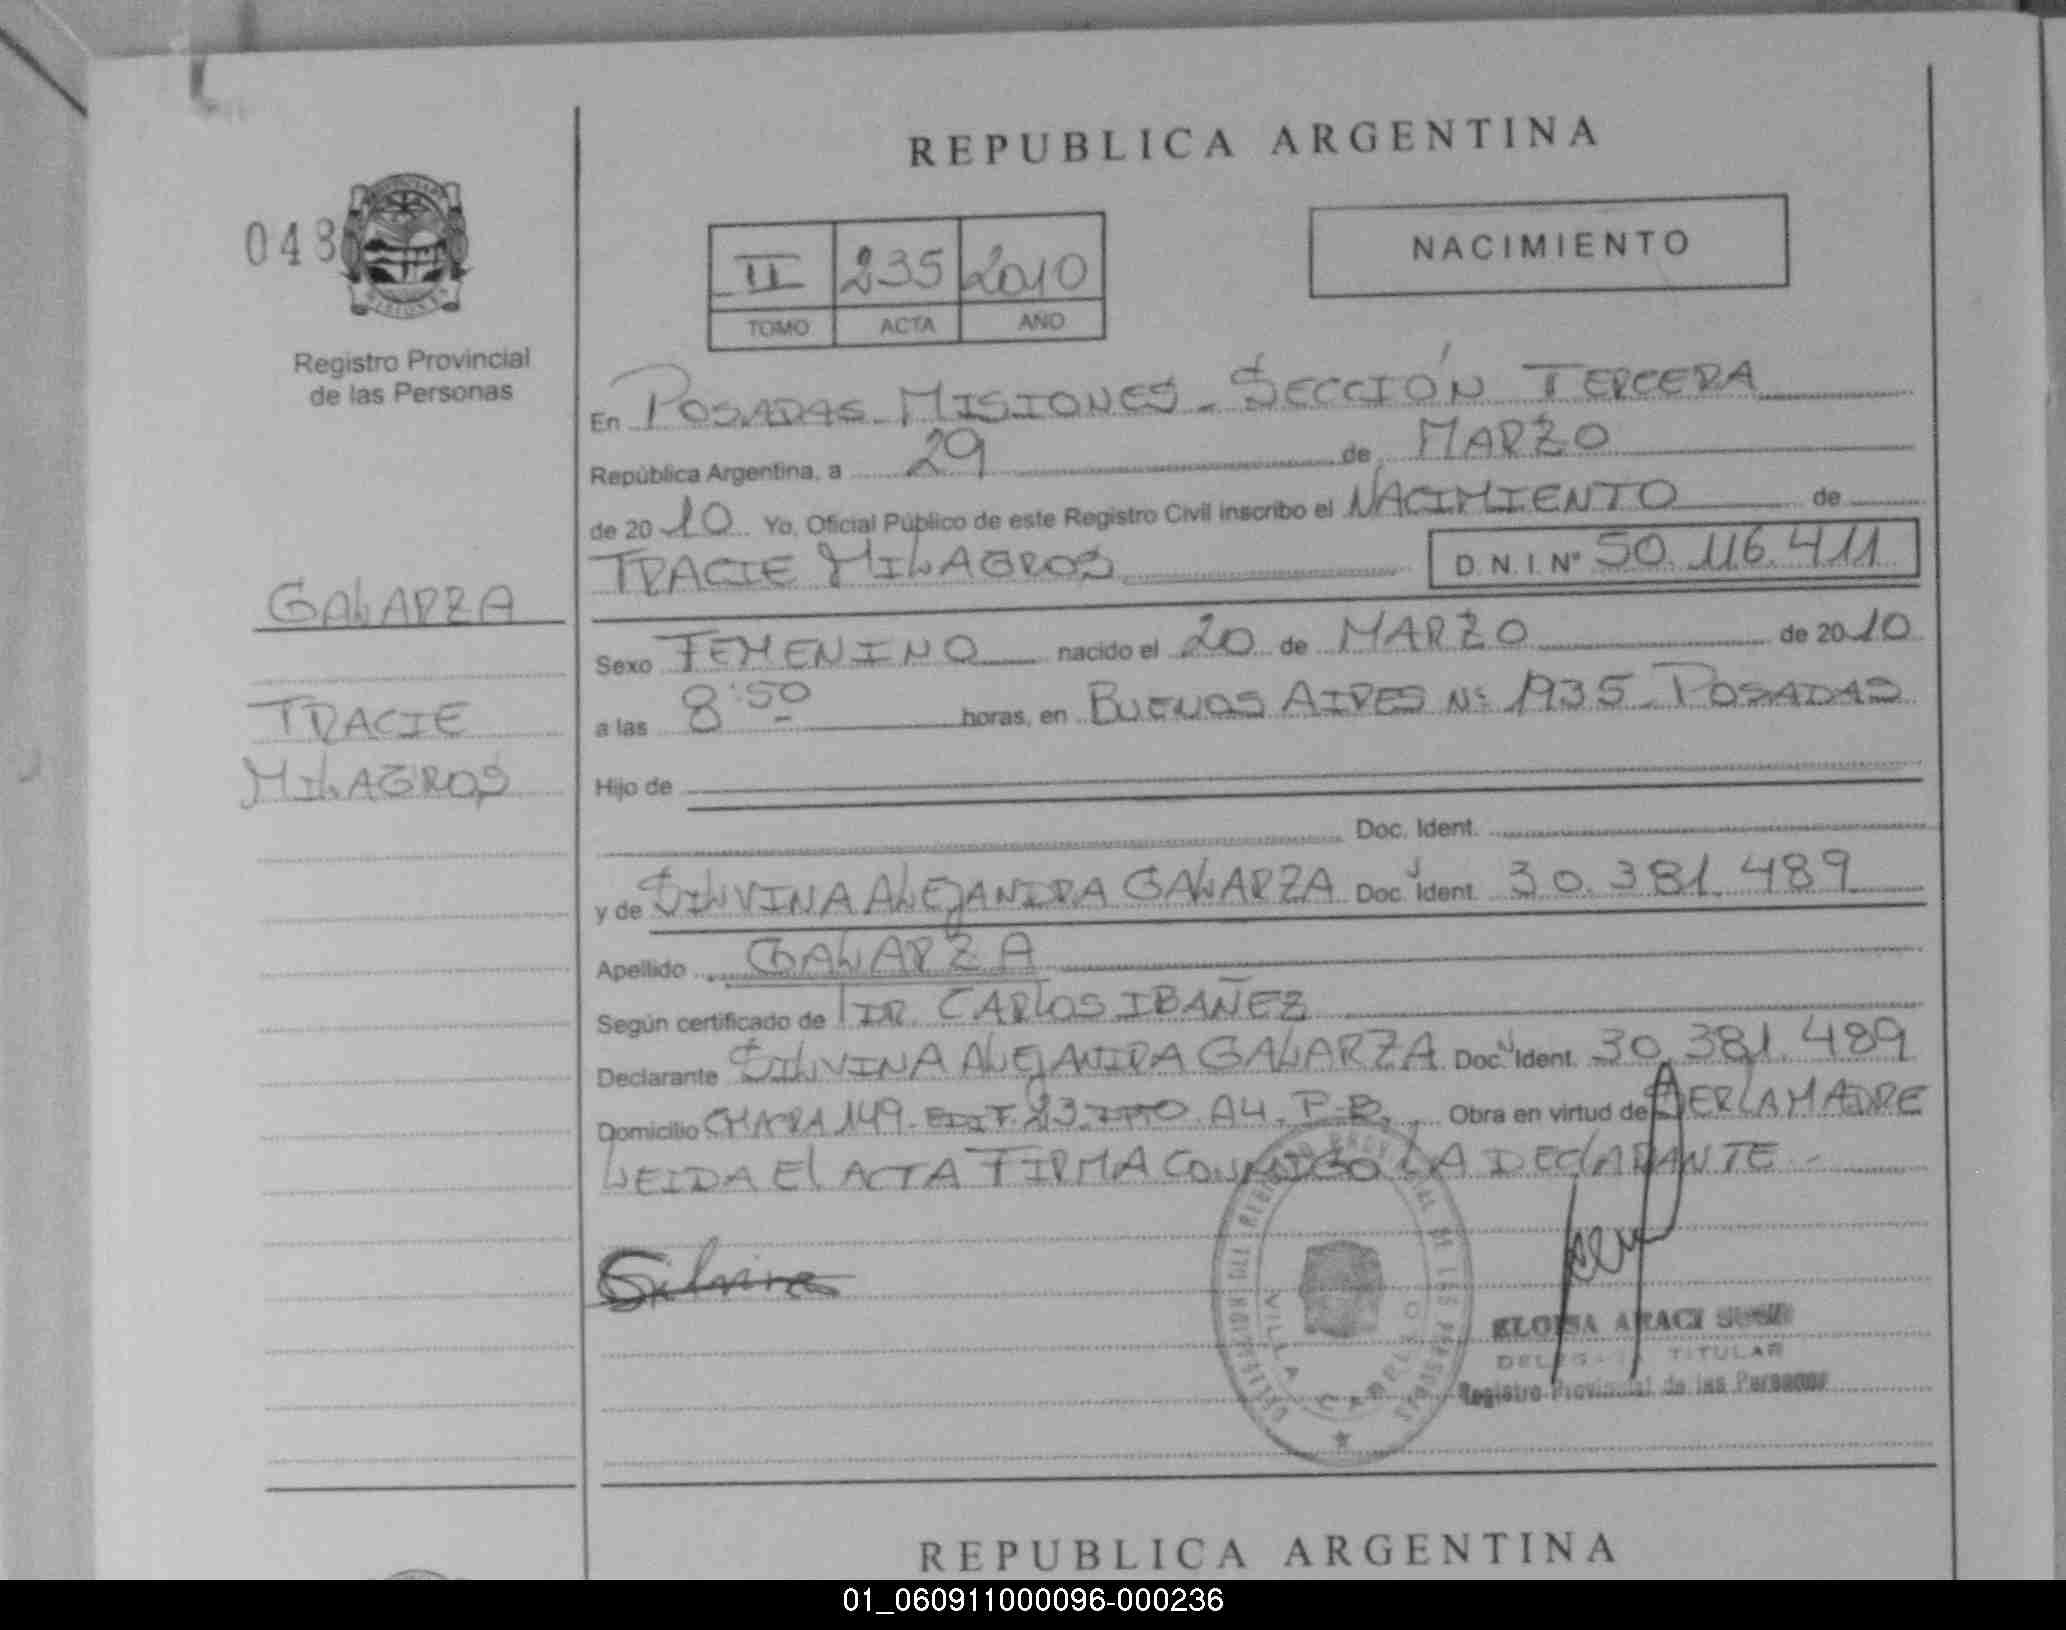 REPUBLICA ARGENTINA
048
NACIMIENTO
II 235 2010
TOMO ACTA AÑO
Registro Provincial
de las Personas
En POSADAS - MISIONES - SECCIÓN TERCERA
República Argentina, a 29 de MARZO
de 2010 Yo, Oficial Público de este Registro Civil inscribo el NACIMIENTO de
TRACIE MILAGROS D.N.I. Nº 50.116.411
GALARZA
Sexo FEMENINO nacido el 20 de MARZO de 2010
TRACIE
a las 8:50 horas, en BUENOS AIRES Nº 1935 - POSADAS
MILAGROS
Hijo de
Doc. Ident.
y de SILVINA ALEJANDRA GALARZA Doc. Ident. 30.381.489
Apellido GALARZA
Según certificado de DR. CARLOS IBAÑEZ
Declarante SILVINA ALEJANDRA GALARZA Doc. Ident. 30.381.489
Domicilio CHACRA 149 - EDIF. 23 - DPTO A4 - P.B. Obra en virtud de SER LA MADRE
LEIDA El ACTA FIRMA CONMIGO LA DEClARANTE -
Silvina
DELEGACION DEL REGISTRO PROVINCIAL DE LAS PERSONAS
VILLA CABELLO
ELOISA ARACI
DELEGADA TITULAR
Registro Provincial de las Personas
REPUBLICA ARGENTINA
01_060911000096-000236